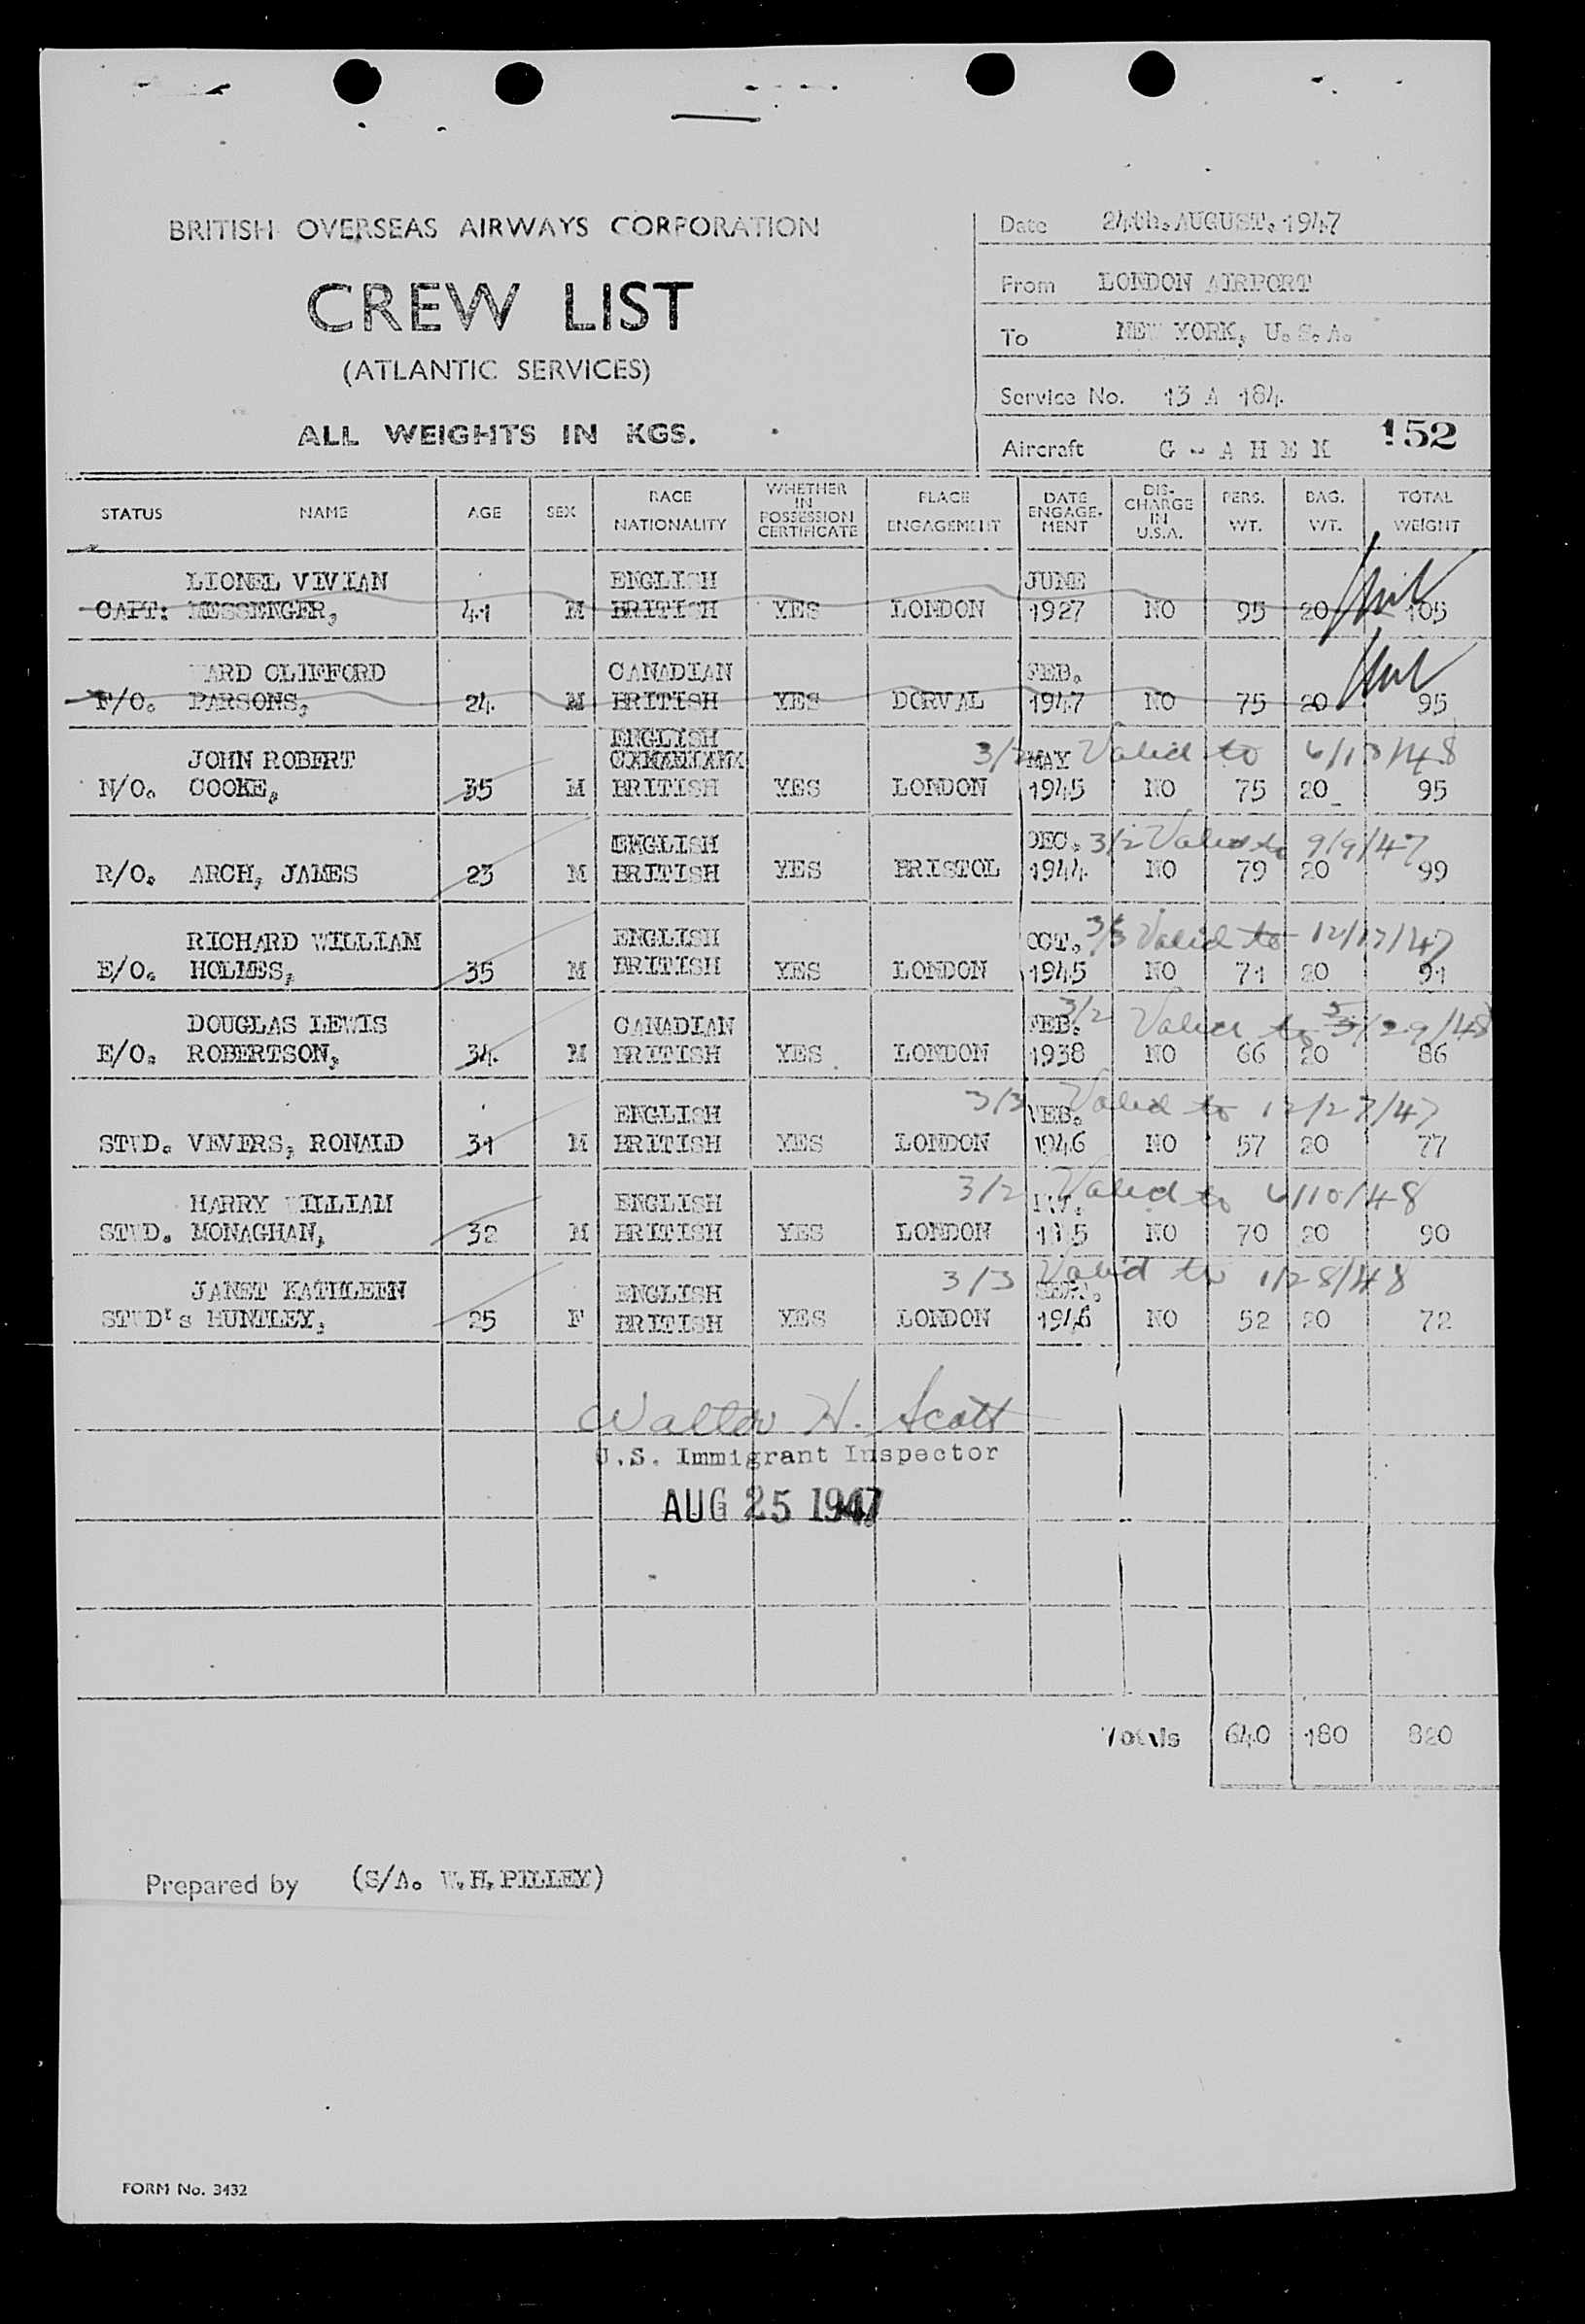 BRITISH OVERSEAS AIRWAYS CORPORATION
CREW LIST
(ATLANTIC SERVICES)
ALL WEIGHTS IN KGS.
Date 24th. AUGUST. 1947
From LONDON AIRPORT
To NEW YORK, U.S.A.
Service No. 13 A 184
Aircraft G - A H E K
152
STATUS NAME AGE SEX RACE NATIONALITY WHETHER IN POSSESSION CERTIFICATE PLACE ENGAGEMENT DATE ENGAGE-MENT DIS-CHARGE IN U.S.A. PERS. WT. BAG. WT. TOTAL WEIGHT
LIONEL VIVIAN ENGLISH JUNE
CAPT: MESSENGER, 41 M BRITISH YES LONDON 1927 NO 95 20 105
ARD CLIFFORD CANADIAN FEB.
F/O. PARSONS, 24 M BRITISH YES DORVAL 1947 NO 75 20 95
ENGLISH
JOHN ROBERT 3/2 MAY Valid to 6/13/48
N/O. COOKE, 35 M BRITISH YES LONDON 1945 NO 75 20 95
ENGLISH DEC. 3/2 Valid to 9/9/47
R/O. ARCH, JAMES 23 M BRITISH YES BRISTOL 1944 NO 79 20 99
RICHARD WILLIAM ENGLISH OCT. 3/3 Valid to 12/17/47
E/O. HOLMES, 35 M BRITISH YES LONDON 1945 NO 71 20 91
DOUGLAS LEWIS CANADIAN FEB. 3/2 Valid to 5/29/48
E/O. ROBERTSON, 34 M BRITISH YES LONDON 1938 NO 66 20 86
ENGLISH 3/3 FEB. Valid to 12/27/47
STWD. VEVERS, RONALD 31 M BRITISH YES LONDON 1946 NO 57 20 77
HARRY WILLIAM ENGLISH 3/2 Valid to 6/10/48
STWD. MONAGHAN, 32 M BRITISH YES LONDON NO 70 20 90
JANET KATHLEEN ENGLISH 3/3 SEPT. Valid to 1/28/48
STWD's HUNTLEY, 25 F BRITISH YES LONDON 1946 NO 52 20 72
Walter H. Scott
U.S. Immigrant Inspector
AUG 25 1947
Totals 640 180 820
Prepared by (S/A. W.H. PILLEY)
FORM No. 3432